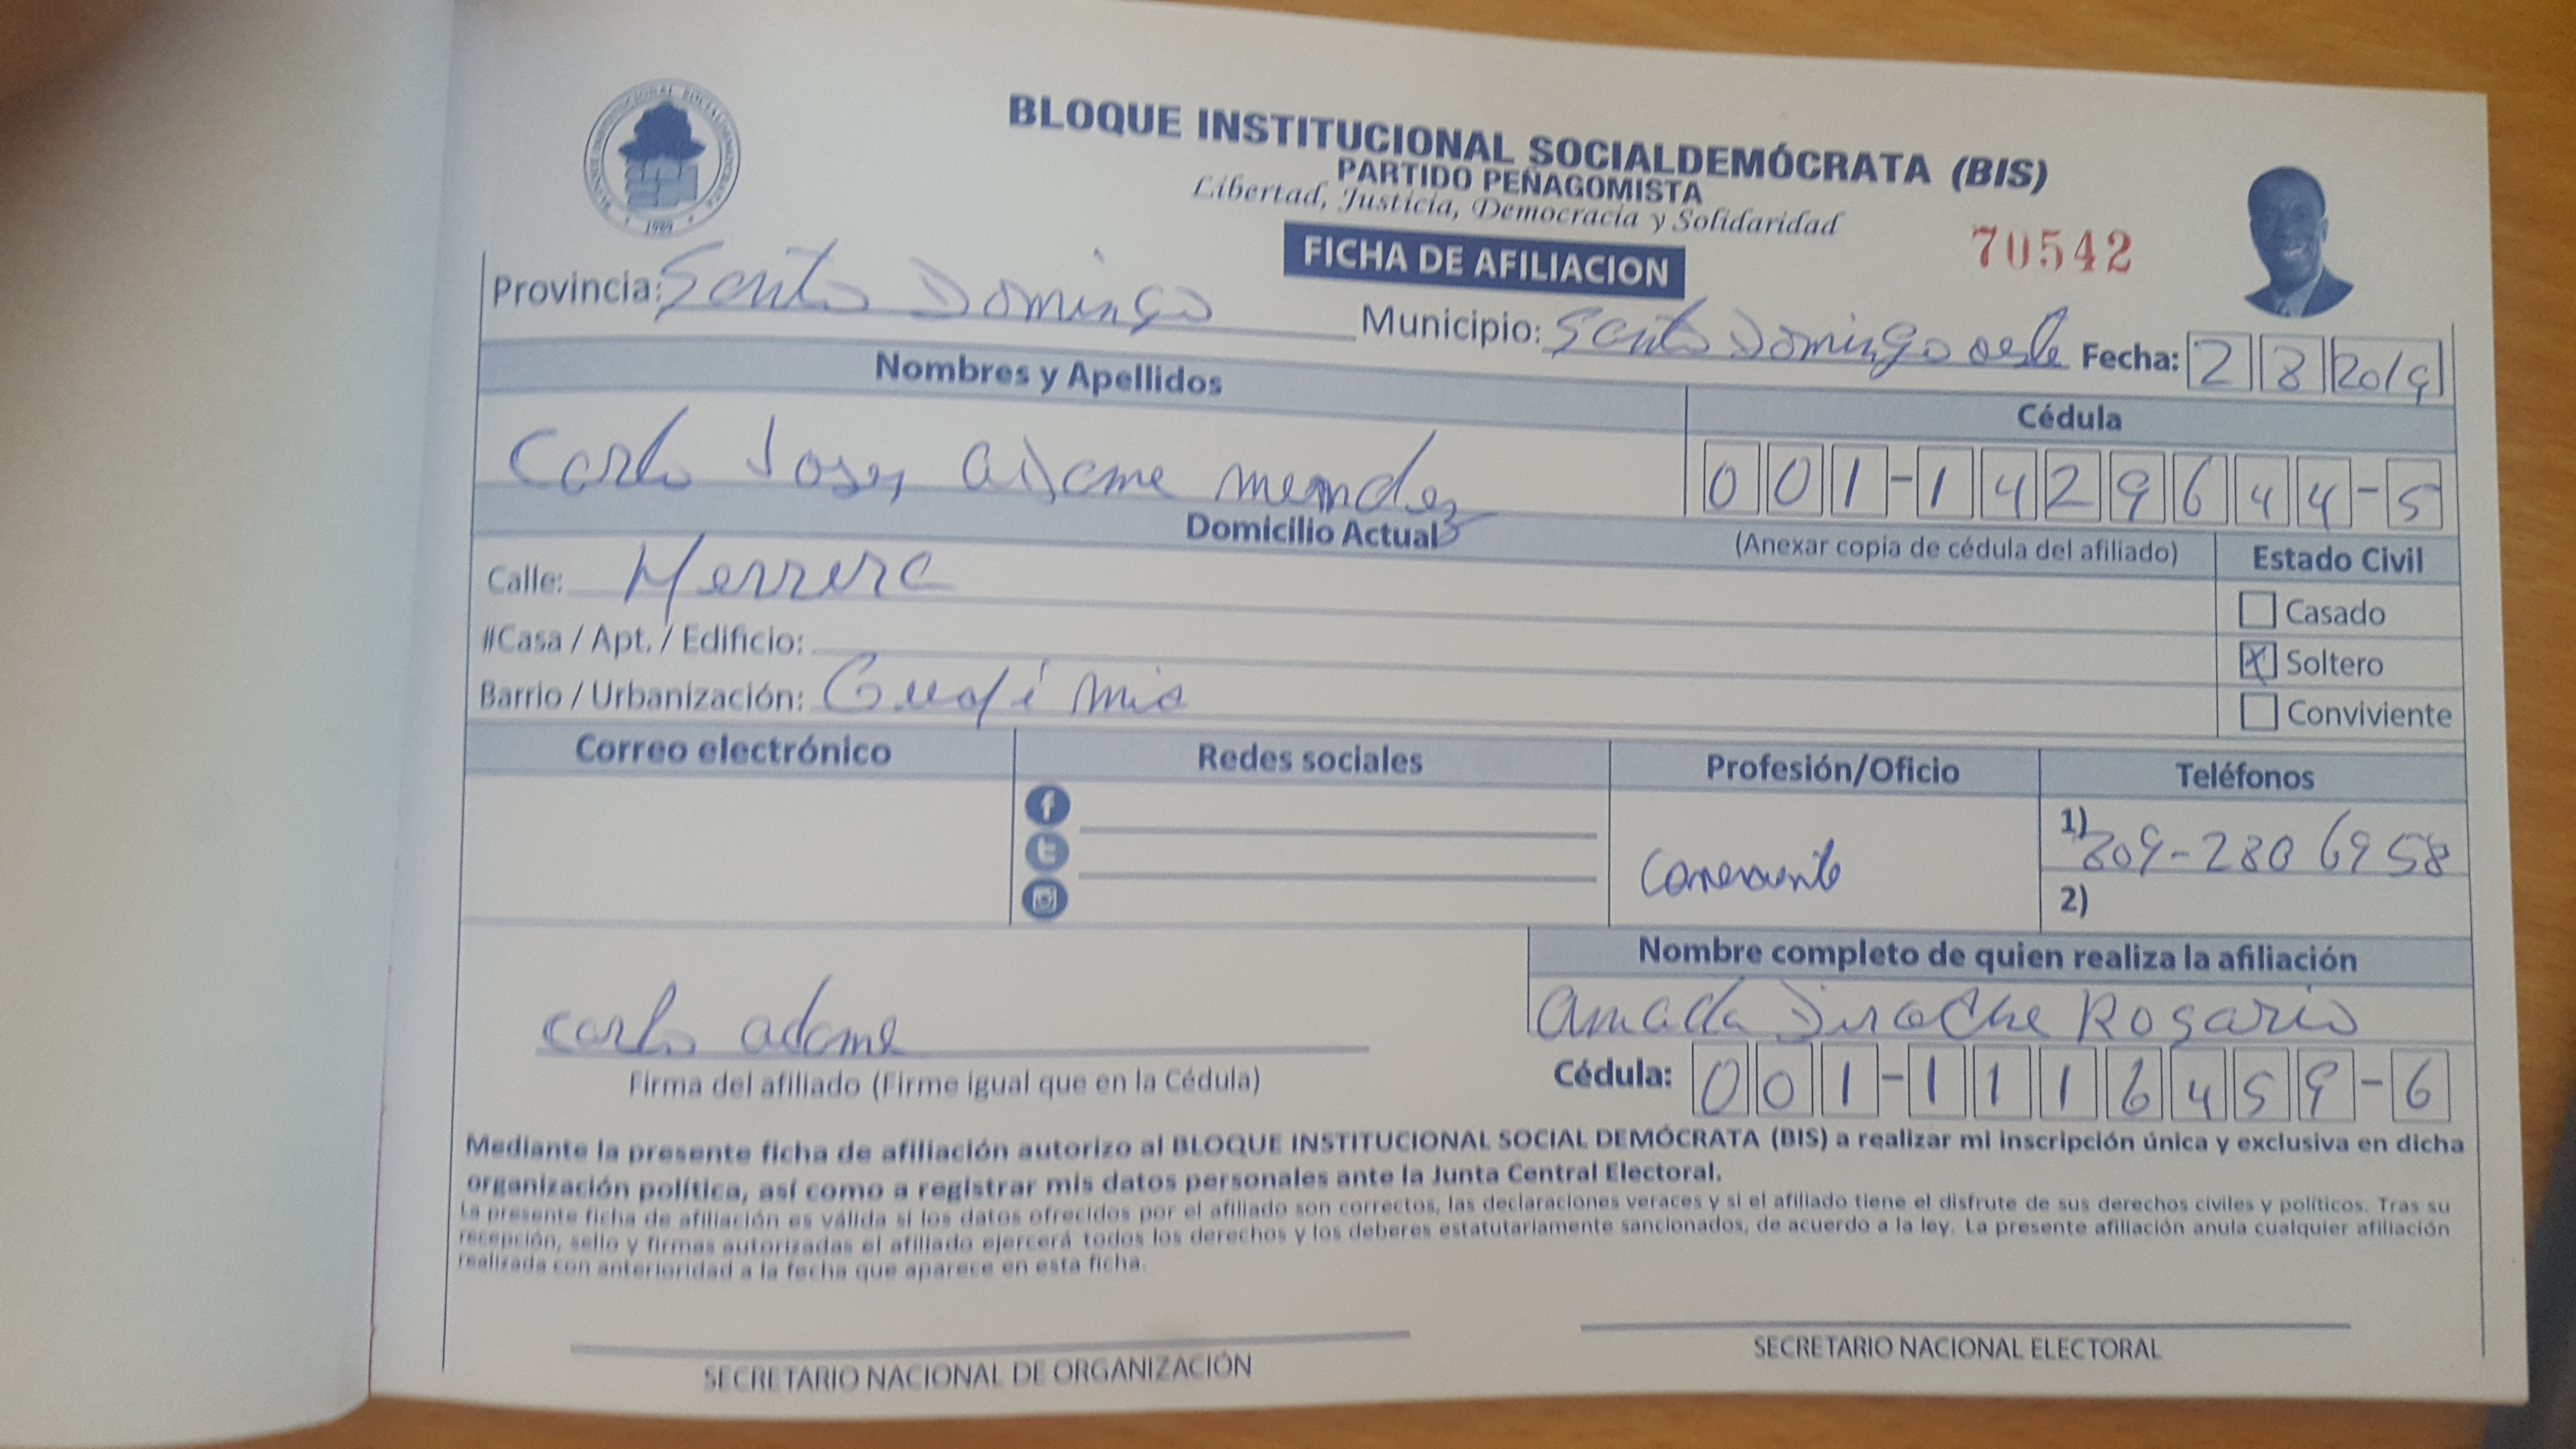 BLOQUE INSTITUCIONAL SOCIALDEMÓCRATA (BIS)
PARTIDO PEÑAGOMISTA
Libertad, Justicia, Democracia y Solidaridad
FICHA DE AFILIACION
70542
1989
Provincia: Santo Domingo
Municipio: Santo Domingo oeste
Fecha: 2 8 2019
Nombres y Apellidos
Cédula
Carlo Jose Adame mendez
001-1429644-5
Domicilio Actual
(Anexar copia de cédula del afiliado)
Estado Civil
Calle: Herrera
Casado
#Casa / Apt. / Edificio:
X Soltero
Barrio / Urbanización:
Conviviente
Correo electrónico
Redes sociales
Profesión/Oficio
Teléfonos
1) 809-280 6958
2)
Nombre completo de quien realiza la afiliación
Amada Diroche Rosario
carlo adame
Firma del afiliado (Firme igual que en la Cédula)
Cédula: 001-1116459-6
Mediante la presente ficha de afiliación autorizo al BLOQUE INSTITUCIONAL SOCIAL DEMÓCRATA (BIS) a realizar mi inscripción única y exclusiva en dicha
organización política, así como a registrar mis datos personales ante la Junta Central Electoral.
La presente ficha de afiliación es válida si los datos ofrecidos por el afiliado son correctos, las declaraciones veraces y si el afiliado tiene el disfrute de sus derechos civiles y políticos. Tras su
recepción, sello y firmas autorizadas el afiliado ejercerá todos los derechos y los deberes estatutariamente sancionados, de acuerdo a la ley. La presente afiliación anula cualquier afiliación
realizada con anterioridad a la fecha que aparece en esta ficha.
SECRETARIO NACIONAL DE ORGANIZACIÓN
SECRETARIO NACIONAL ELECTORAL